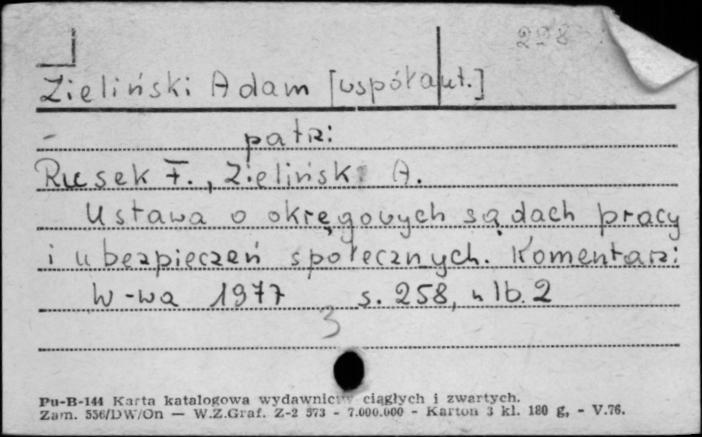 298
Zieliński Adam [współaut.]
- patrz:
Rusek F., Zieliński A.
Ustawa o okręgowych sądach pracy
i ubezpieczeń społecznych. Komentarz:
W-wa 1977 s. 258, nlb. 2
3
Pu-B-144 Karta katalogowa wydawnictw ciągłych i zwartych.
Zam. 556/DW/On — W.Z.Graf. Z-2 573 - 7.000.000 - Karton 3 kl. 180 g, - V.76.